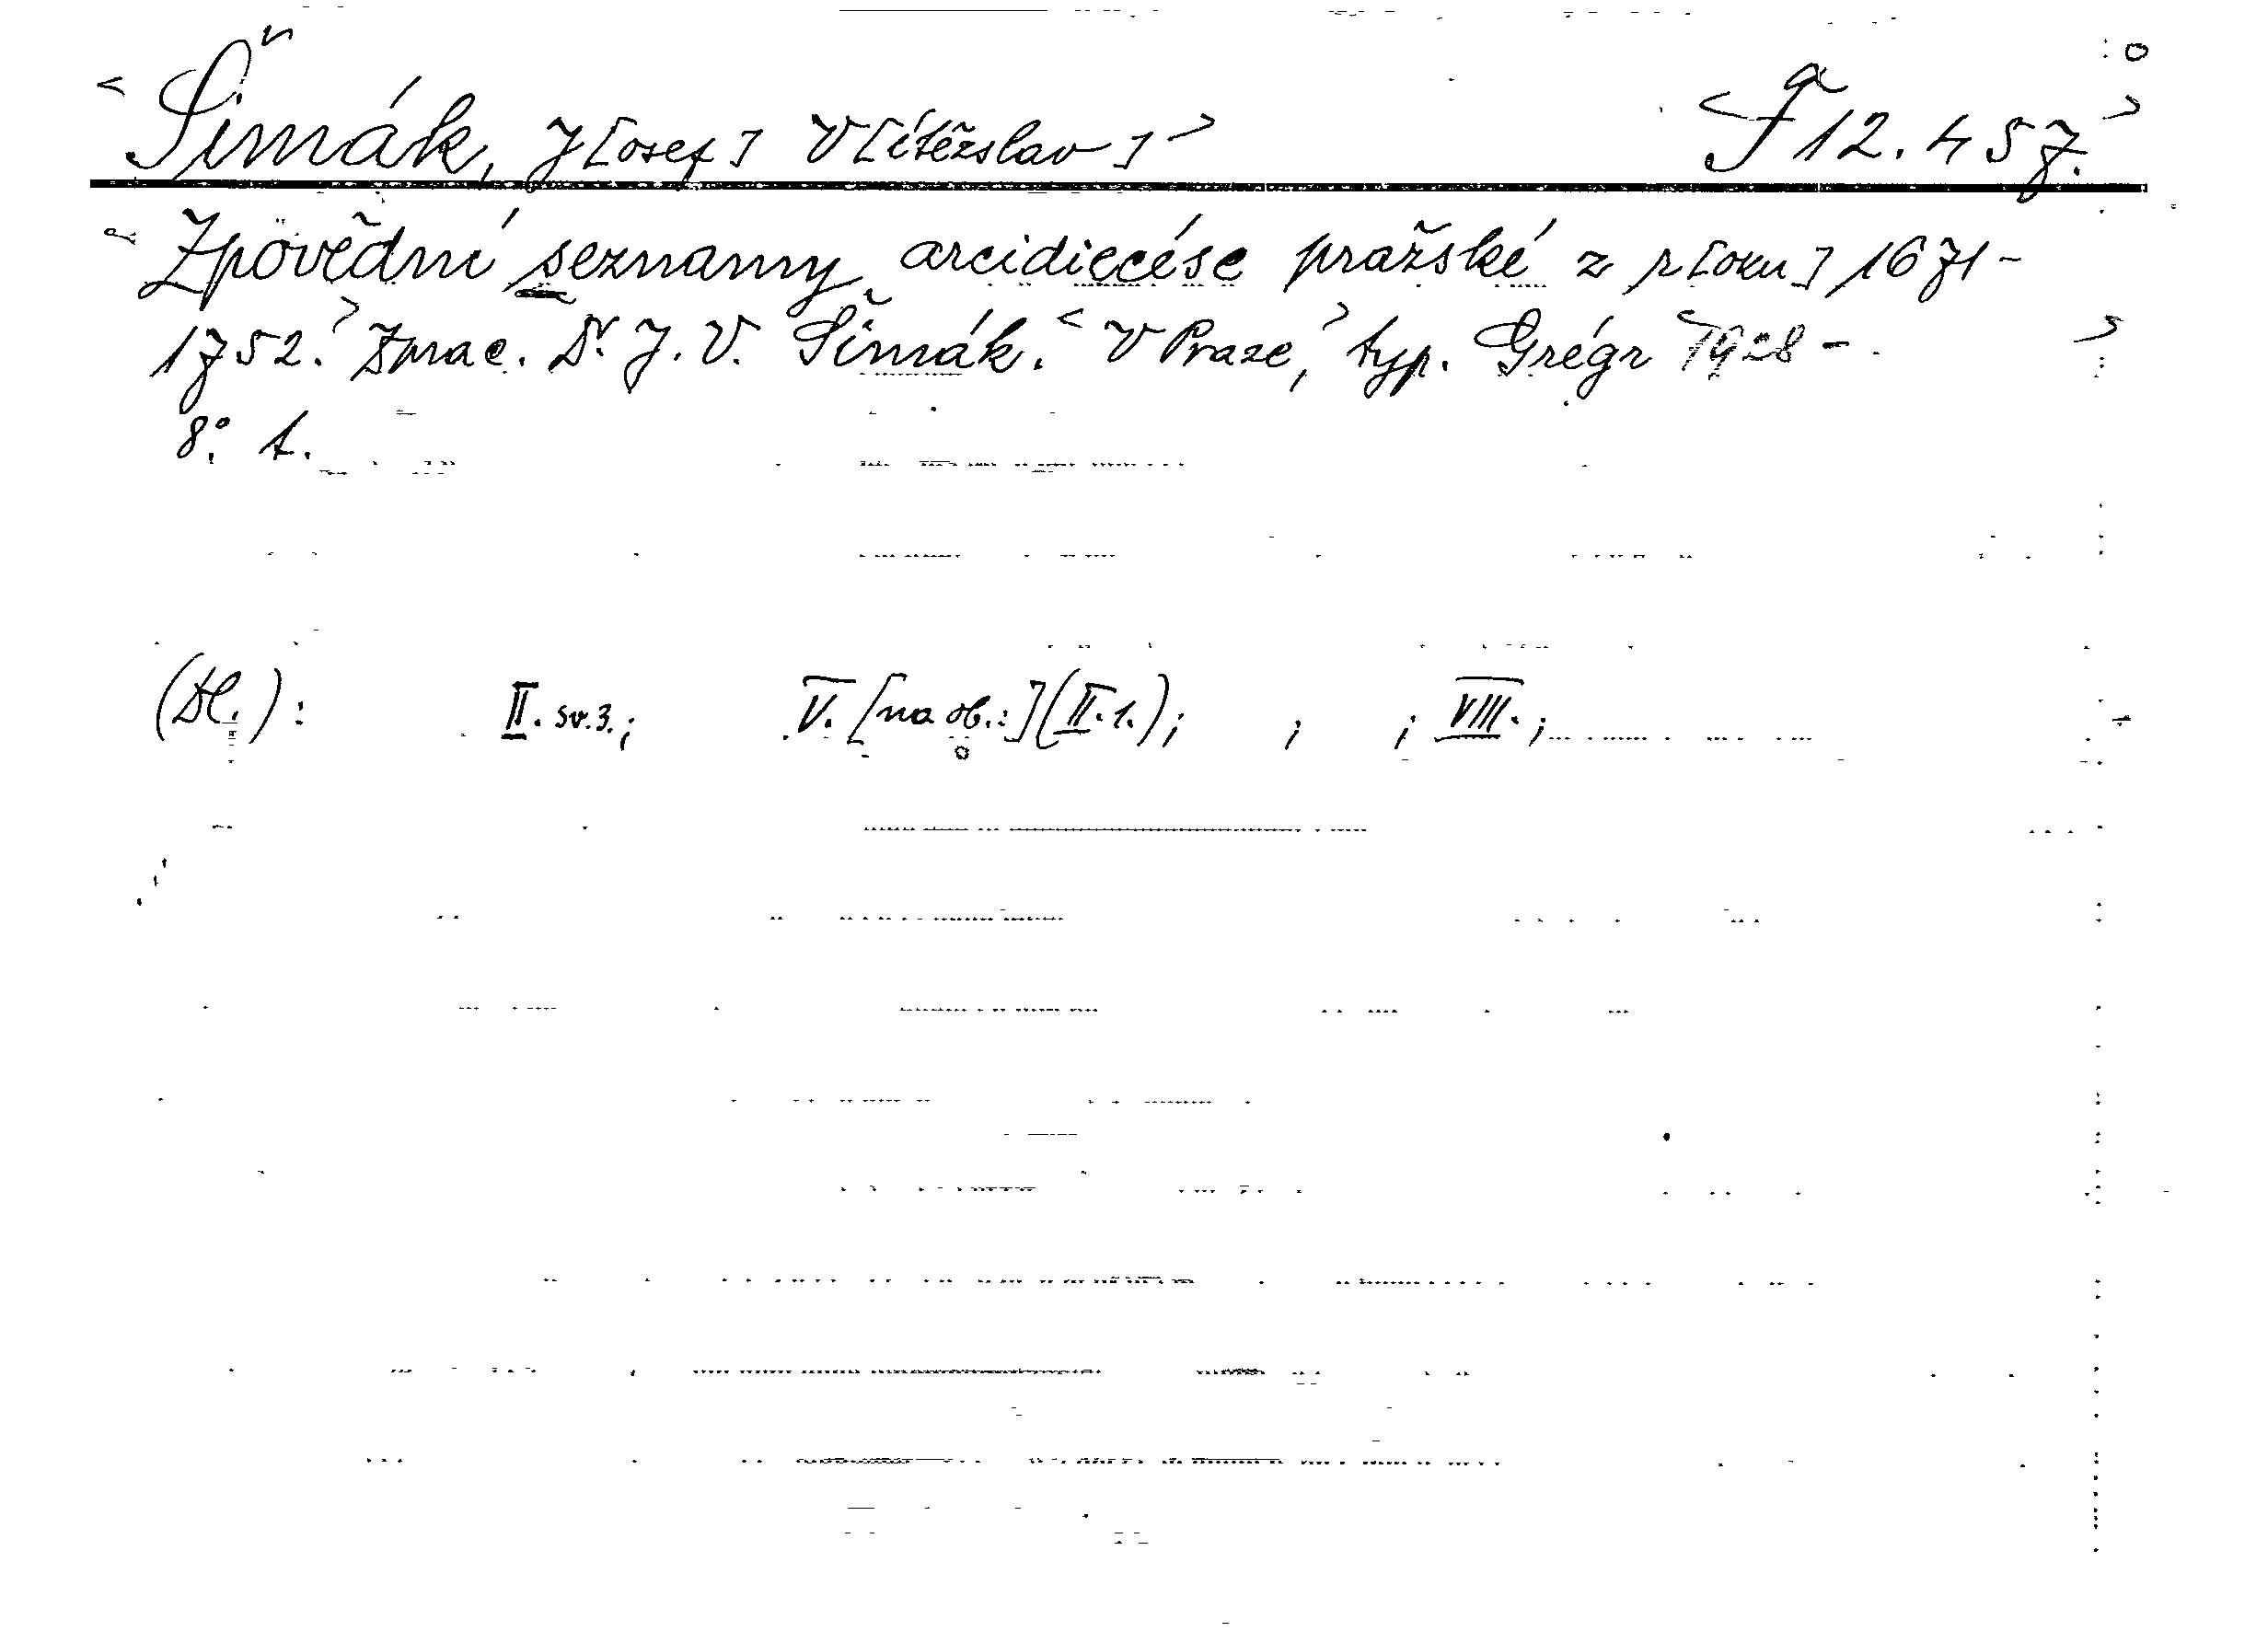 <Šimák, J[osef] V[ítězslav]> <F a 12.457.>
Zpovědní seznamy arcidiecése pražské z r[oku] 1671-
1752.> Zprac. Dr. J. V. Šimák. <V Praze,> typ. Grégr <1928 - >
8°. t.
(Dl.): II. sv. 3.; V. [na ob.:] (II. 1.); ; ; VIII.;